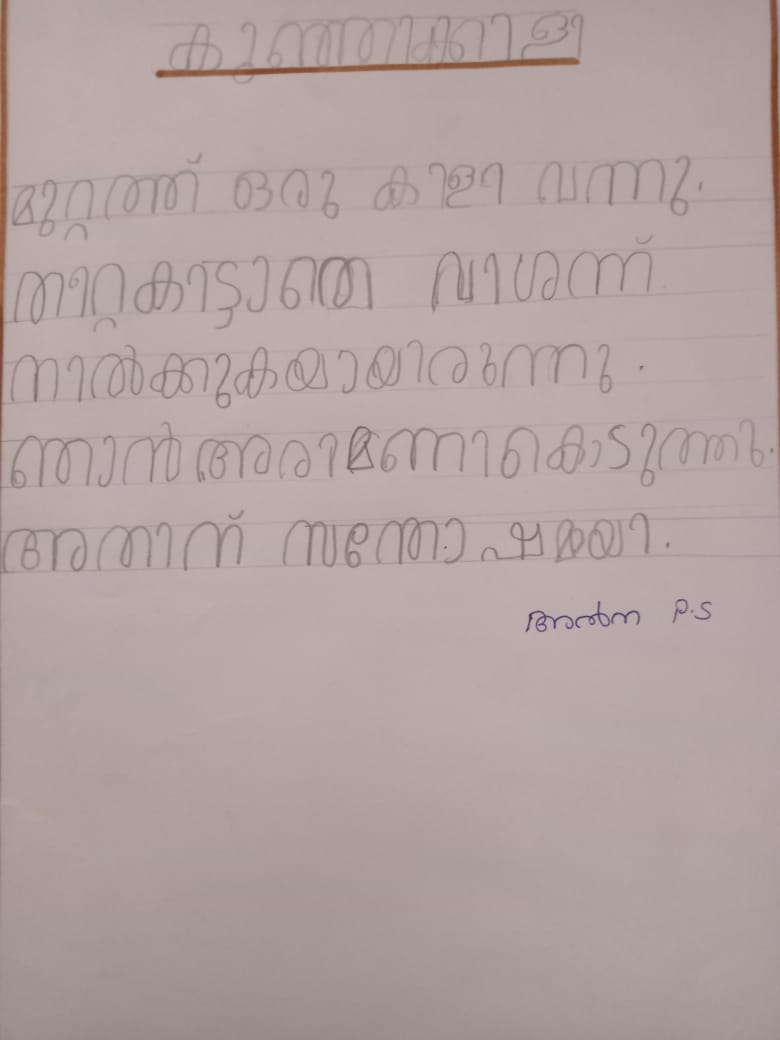 കുഞ്ഞിക്കിളി
മുറ്റത്ത് ഒരു കിളി വന്നു.
തിറ്റകിട്ടാതെ വിശന്ന്
നിൽക്കുകയായിരുന്നു.
ഞാൻഅരിമണികൊടുത്തു.
അതിന് സന്തോഷമയി.
അൽന P.S